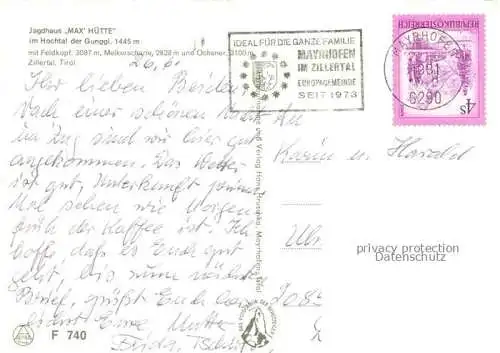 Jagdhaus „MAX' HÜTTE"
im Hochtal der Gunggl, 1445 m
mit Feldkopf, 3087 m, Melkerscharte, 2828 m und Ochsner, 3100 m
Zillertal, Tirol
26.6.
Ihr lieben Beiden
Nach einer schönen
im Zug sind wir hier gut
angekommen. Das Wetter
ist gut, Unterkunft prima.
Mal sehen wie Morgen
früh der Kaffee ist. Ich
hoffe, daß es Euch gut
geht, bis zum nächsten
Brief, grüßt Euch
Eure Mutter
Frida
F 740
IDEAL FÜR DIE GANZE FAMILIE
MAYRHOFEN
IM ZILLERTAL
EUROPAGEMEINDE
SEIT 1973
MAYRHOFEN
6290
REPUBLIK ÖSTERREICH
4S
und Verlag Hans Hruschka, Mayrhofen, Tirol
An
Karin u. Harald
privacy protection
Datenschutz